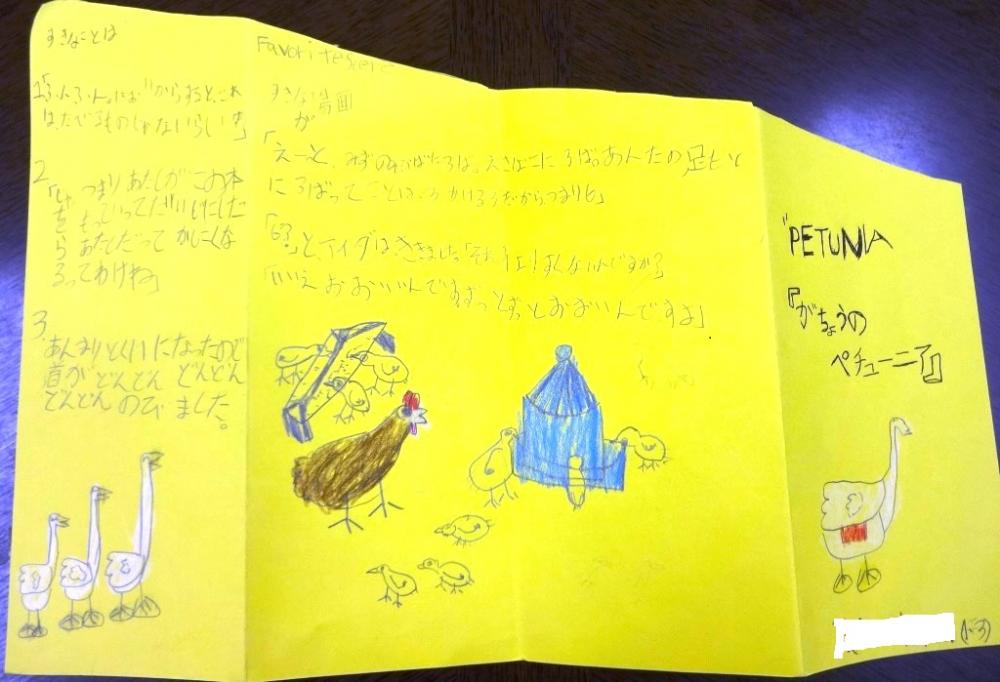 すきなことば
1「ふんふん。におい からすると、これ
は、たべるものじゃないらしいわ」
2
「つまりあたしがこの本
を もっていってだいじにした
ら あたしだって かしこくな
るってわけね」
3.
あんまりとくいになったので
首が どんどん どんどん
どんどん のび ました。
Favorite
すきな場面
が
「えーと、みずのみばに3ば。えさばこに 3ば。あんたの足もと
に 3ばってことは、
つまり6」
「6?」と、アイダはききました。
「いえ おおいんです。ずっとずっとおおいんですよ」
"PETUNIA
『がちょうの
ペチューニア』